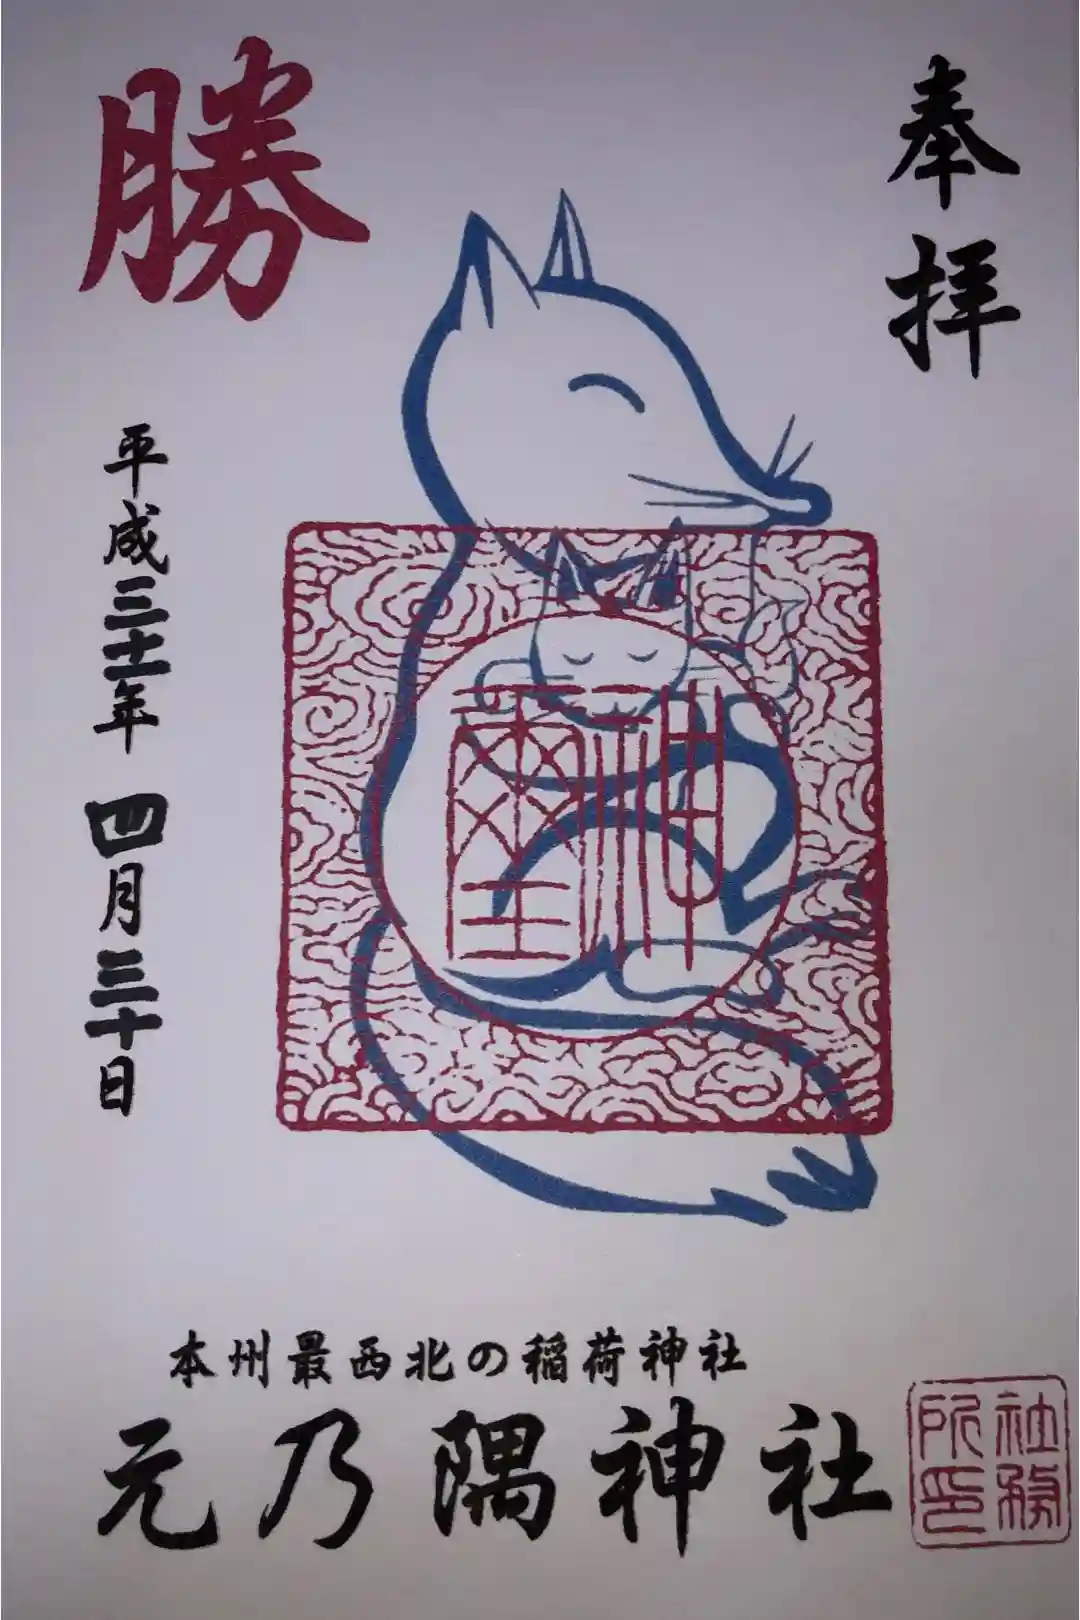 奉拝
勝
平成三十一年 四月三十日
神璽
本州最西北の稲荷神社
元乃隅神社
社務所印